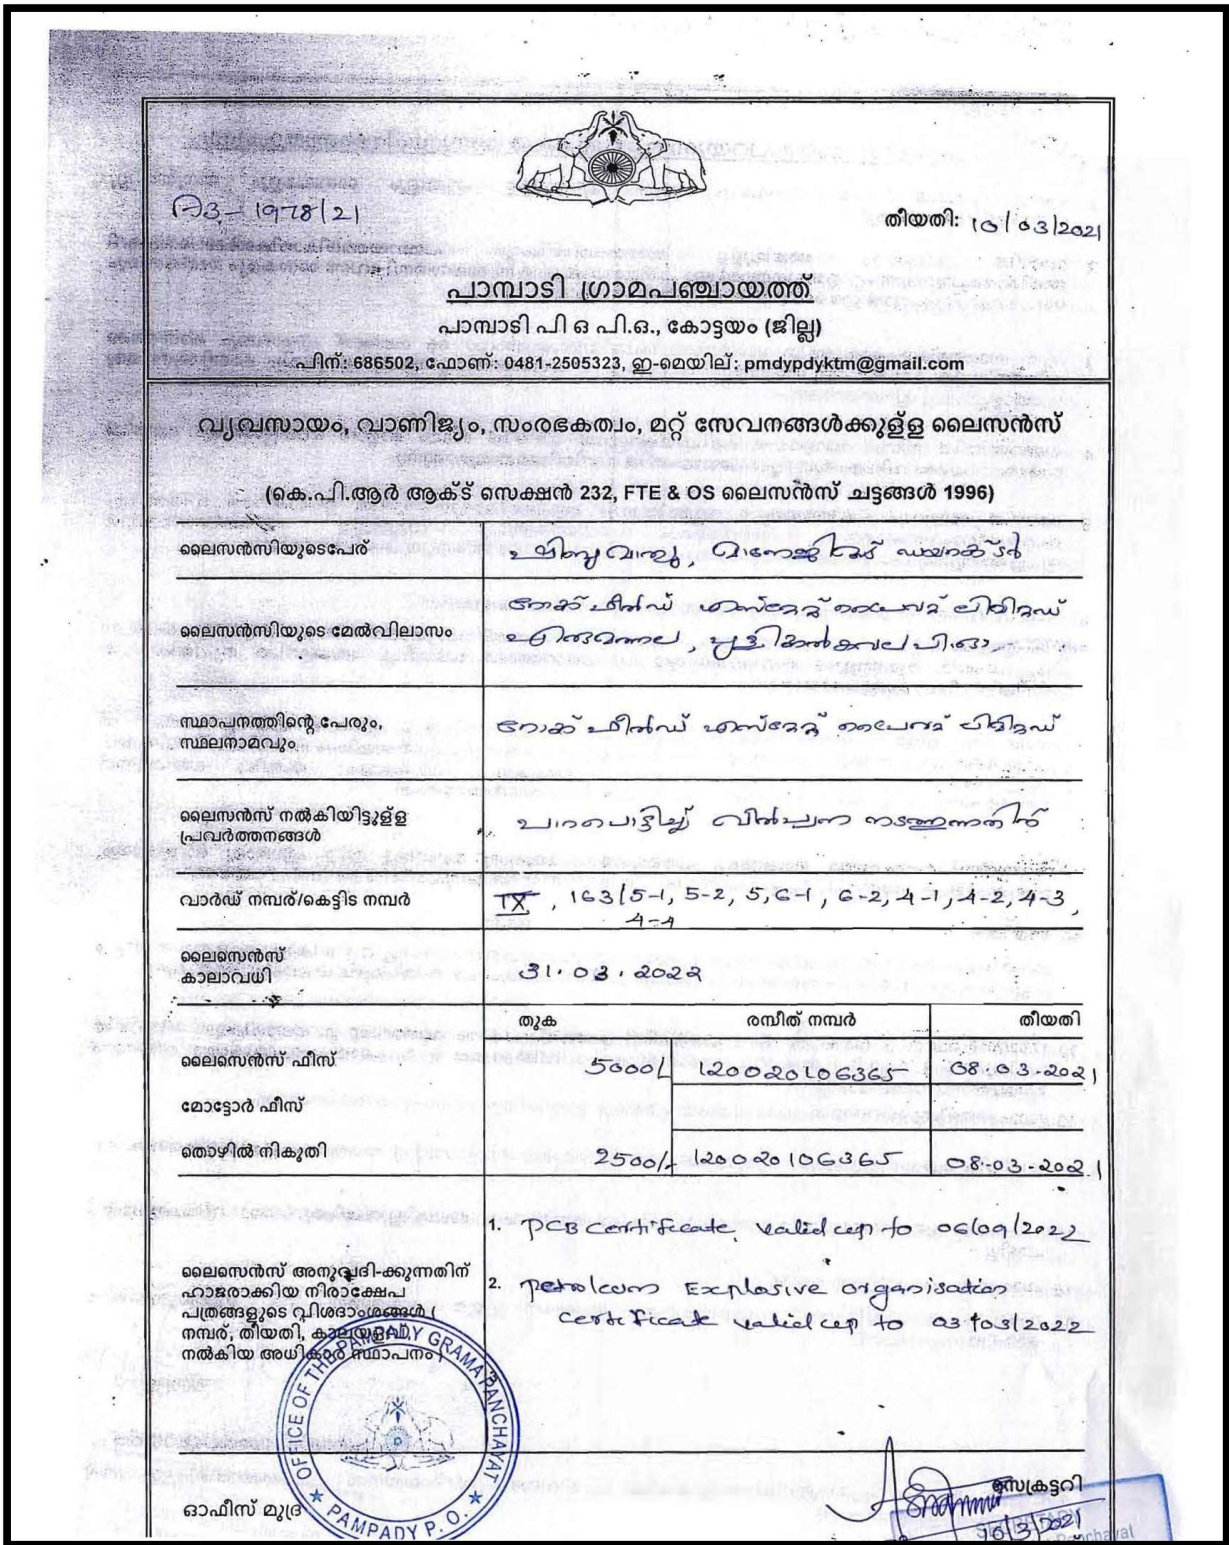 A3-1978/21
തീയതി: 10/03/2021
പാമ്പാടി ഗ്രാമപഞ്ചായത്ത്
പാമ്പാടി പി ഒ പി.ഒ., കോട്ടയം (ജില്ല)
പിന്: 686502, ഫോണ്: 0481-2505323, ഇ-മെയില്: pmdypdyktm@gmail.com
വ്യവസായം, വാണിജ്യം, സംരഭകത്വം, മറ്റ് സേവനങ്ങൾക്കുള്ള ലൈസൻസ്
(കെ.പി.ആർ ആക്ട് സെക്ഷൻ 232, FTE & OS ലൈസൻസ് ചട്ടങ്ങൾ 1996)
ലൈസൻസിയുടെപേര് മാത്യു, മാനേജിംഗ് ഡയറക്ടർ
ലൈസൻസിയുടെ മേൽവിലാസം
എസ്റ്റേറ്റ് പ്രൈവറ്റ് ലിമിറ്റഡ്
പി.ഒ
സ്ഥാപനത്തിന്റെ പേരും,
സ്ഥലനാമവും
എസ്റ്റേറ്റ് പ്രൈവറ്റ് ലിമിറ്റഡ്
ലൈസൻസ് നൽകിയിട്ടുള്ള
പ്രവർത്തനങ്ങൾ
പാറപൊട്ടിച്ച് വിൽപ്പന നടത്തുന്നതിന്
വാർഡ് നമ്പര്/കെട്ടിട നമ്പർ IX, 163/5-1, 5-2, 5, 6-1, 6-2, 4-1, 4-2, 4-3,
4-4
ലൈസെൻസ്
കാലാവധി
31.03.2022
തുക രസീത് നമ്പർ തീയതി
ലൈസെൻസ് ഫീസ് 5000/- 120020106365 08.03-2021
മോട്ടോർ ഫീസ്
തൊഴിൽ നികുതി 2500/- 120020106365 08-03-2021
1. PCB Certificate, valid up to 06/09/2022
ലൈസെൻസ് അനുവദി-ക്കുന്നതിന്
ഹാജരാക്കിയ നിരാക്ഷേപ
പത്രങ്ങളുടെ വിശദാംശങ്ങൾ (
നമ്പർ, തീയതി, കാലയളവ്,
നൽകിയ അധികാര സ്ഥാപനം)
2. Petroleum Explosive organisation
certificate valid up to 03/03/2022
OFFICE OF THE PAMPADY GRAMA PANCHAYAT
PAMPADY P. O.
ഓഫീസ് മുദ്ര
സെക്രട്ടറി
SECRETARY
10/3/2021
Panchayat